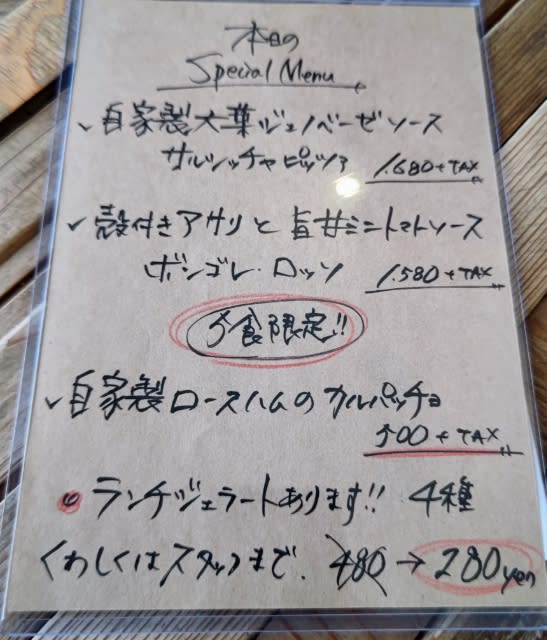 本日の
Special Menu
✓ 自家製大葉ジェノベーゼソース
サルシッチャピッツァ 1.680+TAX
✓ 殻付きアサリと旨甘ミニトマトソース
ボンゴレ・ロッソ 1.580+TAX
5食限定!!
✓ 自家製ロースハムのカルパッチョ
500+TAX
ランチジェラートあります!! 4種
くわしくはスタッフまで. 480→280yen